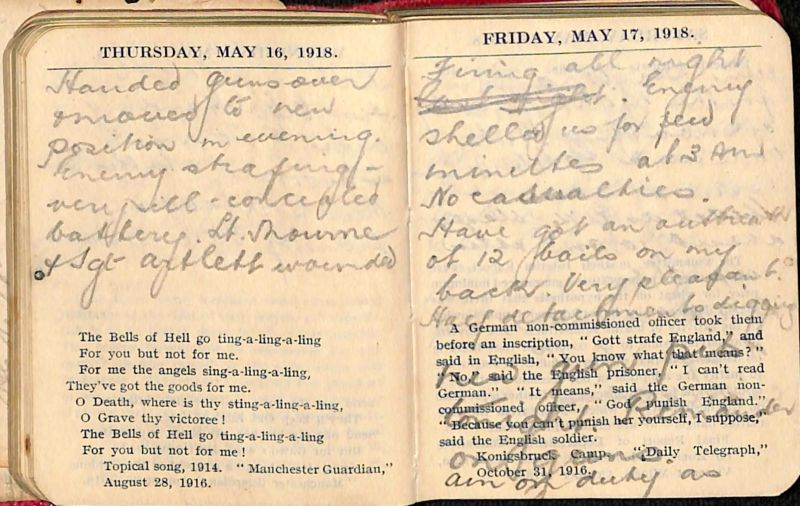 THURSDAY, MAY 16, 1918.
Handed guns over
& moved to new
position in evening.
Enemy strafing -
very ill-concealed
battery. Lt.
& Sgt wounded
The Bells of Hell go ting-a-ling-a-ling
For you but not for me.
For me the angels sing-a-ling-a-ling,
They've got the goods for me.
O Death, where is thy sting-a-ling-a-ling,
O Grave thy victoree!
The Bells of Hell go ting-a-ling-a-ling
For you but not for me!
Topical song, 1914. "Manchester Guardian,"
August 28, 1916.
FRIDAY, MAY 17, 1918.
Firing all night
Enemy
shelled us for few
minutes at 3 AM
No casualties.
Have got an
of 12 boils on my
back. Very pleasant.
Half detachments digging
new gun pits
Remainder
on guns.
am on duty as
A German non-commissioned officer took them
before an inscription, "Gott strafe England," and
said in English, "You know what that means?"
"No," said the English prisoner, "I can't read
German." "It means," said the German non-
commissioned officer, "God punish England."
"Because you can't punish her yourself, I suppose,"
said the English soldier.
Konigsbruck Camp. "Daily Telegraph,"
October 31, 1916.